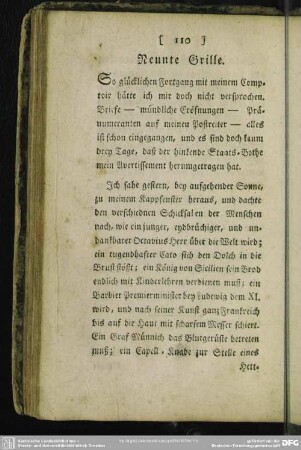 [ 110 ]
Neunte Grille.
So glücklichen Fortgang mit meinem Comp-
toir hätte ich mir doch nicht versprochen.
Briefe — mündliche Eröfnungen — Prä-
numeranten auf meinen Postreiter — alles
ist schon eingegangen, und es sind doch kaum
drey Tage, daß der hinkende Staats-Bothe
mein Avertissement herumgetragen hat.
Ich sahe gestern, bey aufgehender Sonne,
zu meinem Kappfenster heraus, und dachte
den verschiednen Schicksalen der Menschen
nach, wie ein junger, eydbrüchiger, und un-
dankbarer Octavius Herr über die Welt wird;
ein tugendhafter Cato sich den Dolch in die
Brust stößt; ein König von Sicilien sein Brod
endlich mit Kinderlehren verdienen muß; ein
Barbier Premierminister bey Ludewig dem XI.
wird, und nach seiner Kunst ganz Frankreich
bis auf die Haut mit scharfem Messer schiert.
Ein Graf Münnich das Blutgerüste betreten
muß; ein Capell-Knabe zur Stelle eines
Hett-